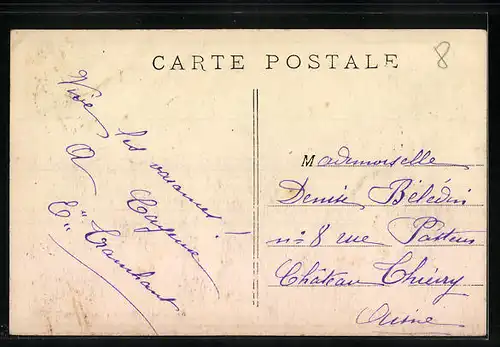 CARTE POSTALE
8
Vive les vacances !
A
Mademoiselle
Denise
n° 8 rue Pasteur
Château Thierry
Aisne